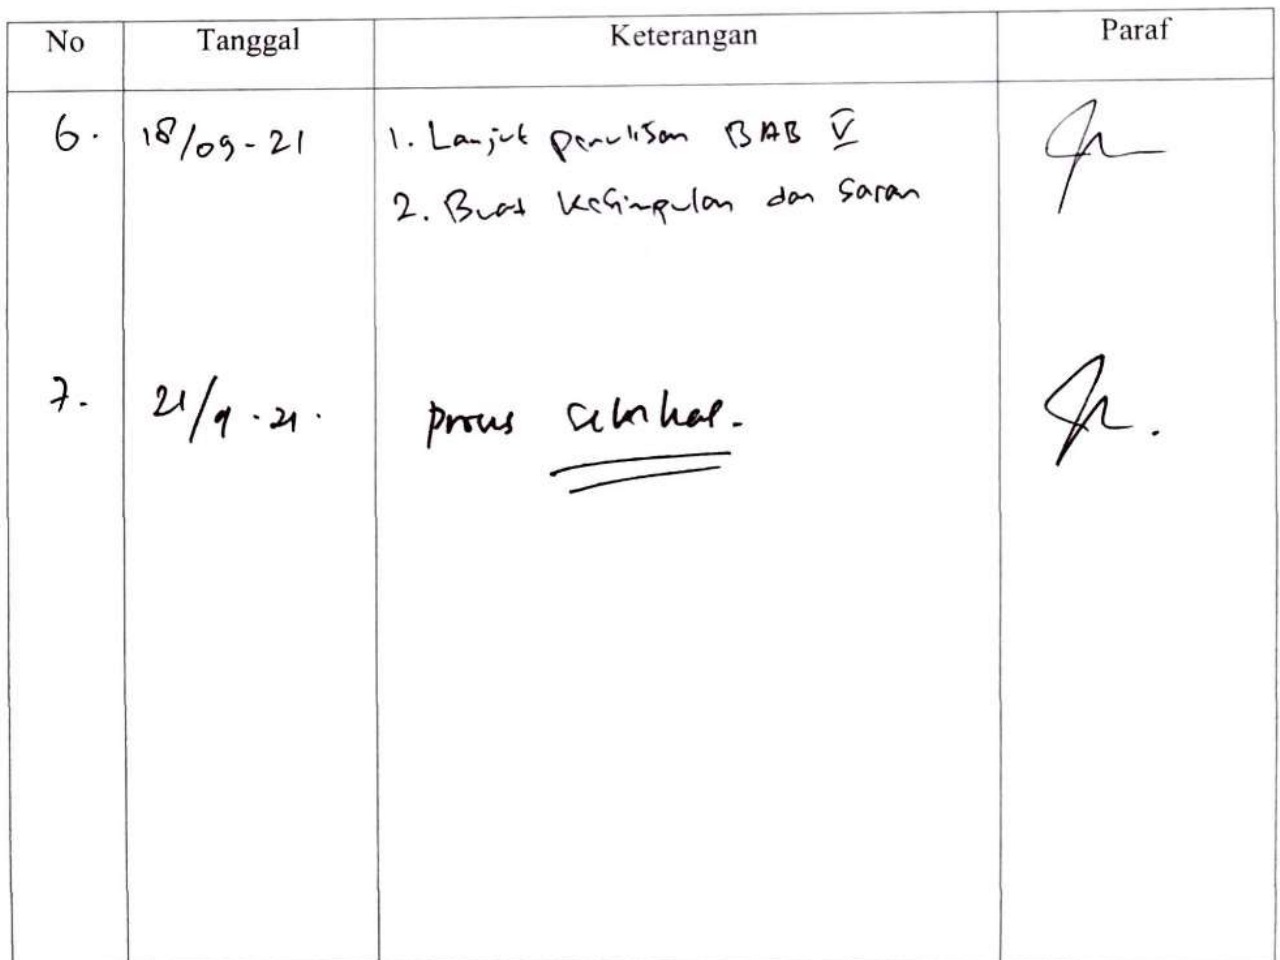 No Tanggal Keterangan Paraf
6. 18/09-21 1. Lanjut penulisan BAB V
2. Buat kesimpulan dan saran
7. 21/9.21.